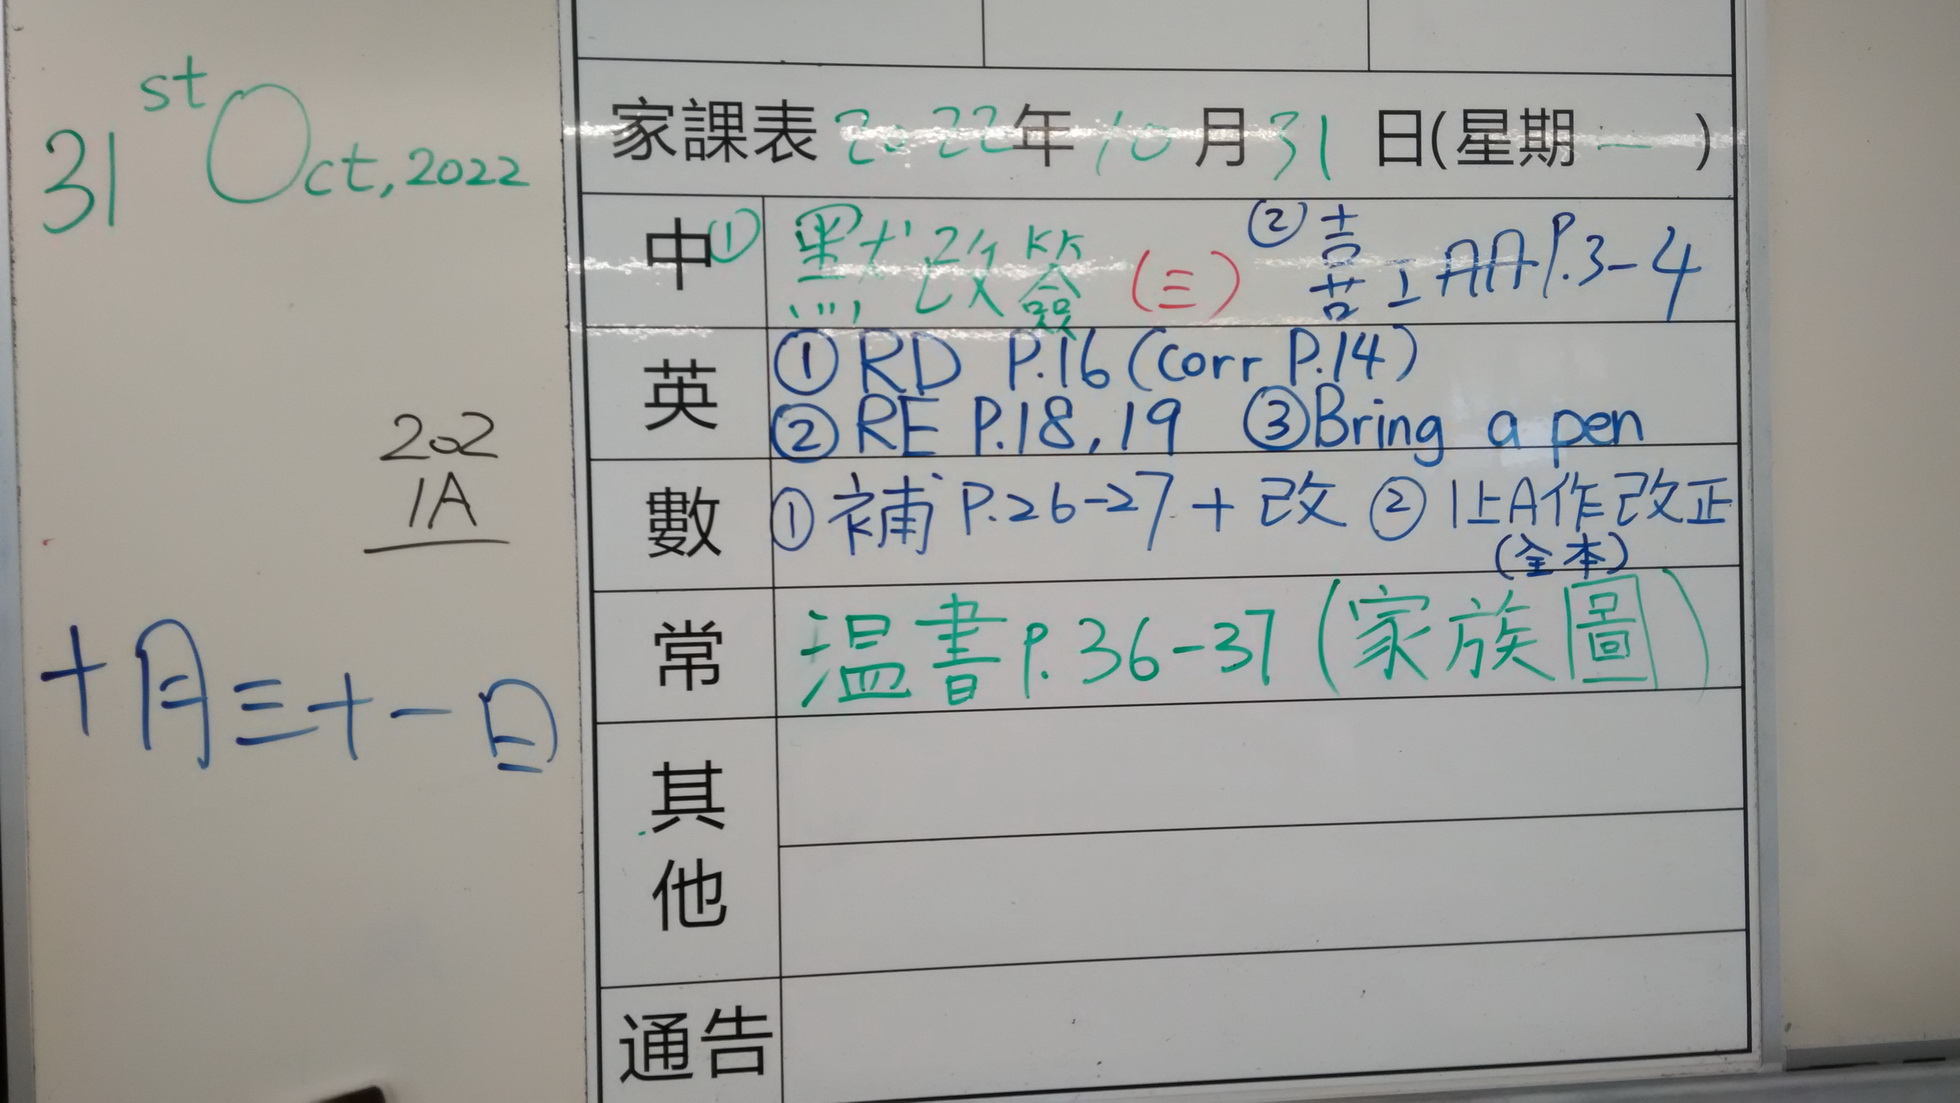 31st Oct, 2022
202
1A
十月三十一日
家課表 2022年10月31日(星期一)
中 ① 默改簽 (三) ② 喜上AA P.3-4
英 ① RD P.16 (corr P.14)
② RE P.18, 19 ③ Bring a pen
數 ① 補 P.26-27 + 改 ② 1上A作改正
(全本)
常 温書 P.36-37 (家族圖)
其他
通告